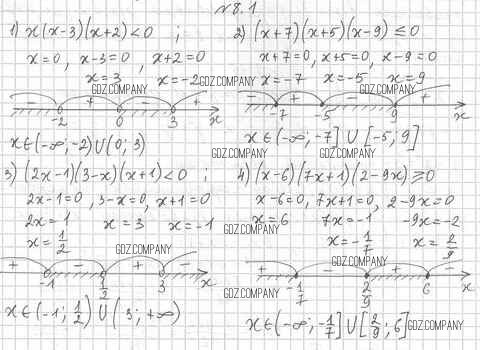 №8.1
1) x(x-3)(x+2)<0 ;
x=0, x-3=0, x+2=0
x=3 x=-2
GDZ.COMPANY
GDZ.COMPANY
- + - +
-2 0 3 x
x∈(-∞;-2)∪(0;3)
2) (x+7)(x+5)(x-9)≤0
x+7=0, x+5=0, x-9=0
x=-7 x=-5 x=9
GDZ.COMPANY
- + - +
-7 -5 9 x
x∈(-∞;-7]∪[-5;9]
GDZ.COMPANY
GDZ.COMPANY
3) (2x-1)(3-x)(x+1)<0 ;
2x-1=0, 3-x=0, x+1=0
2x=1 x=3 x=-1
x=1/2
GDZ.COMPANY
+ - + -
-1 1/2 3 x
x∈(-1;1/2)∪(3;+∞)
4) (x-6)(7x+1)(2-9x)≥0
x-6=0, 7x+1=0, 2-9x=0
x=6 7x=-1 -9x=-2
GDZ.COMPANY
x=-1/7 x=2/9
GDZ.COMPANY
+ - + -
-1/7 2/9 6 x
GDZ.COMPANY
x∈(-∞;-1/7]∪[2/9;6]
GDZ.COMPANY